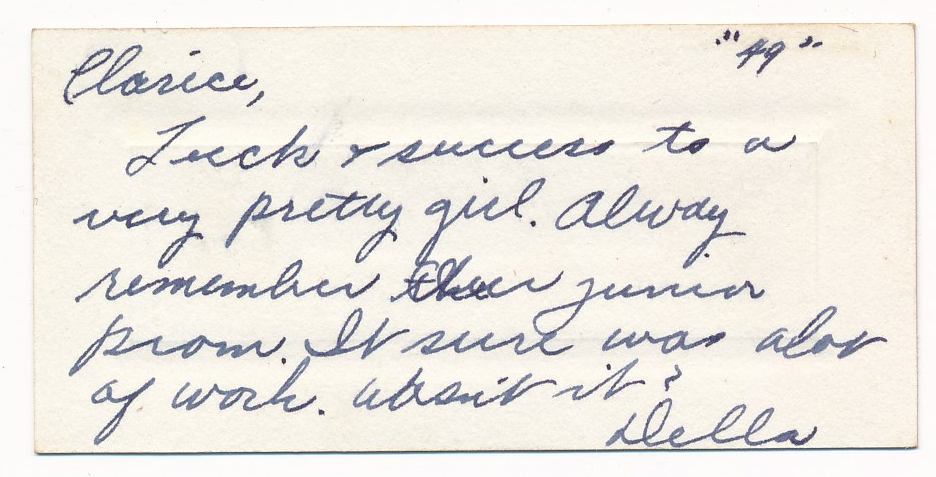 "49"
Clarice,
Luck & success to a
very pretty girl. Alway
remember junior
prom. It sure was alot
of work. Wasn't it?
Della